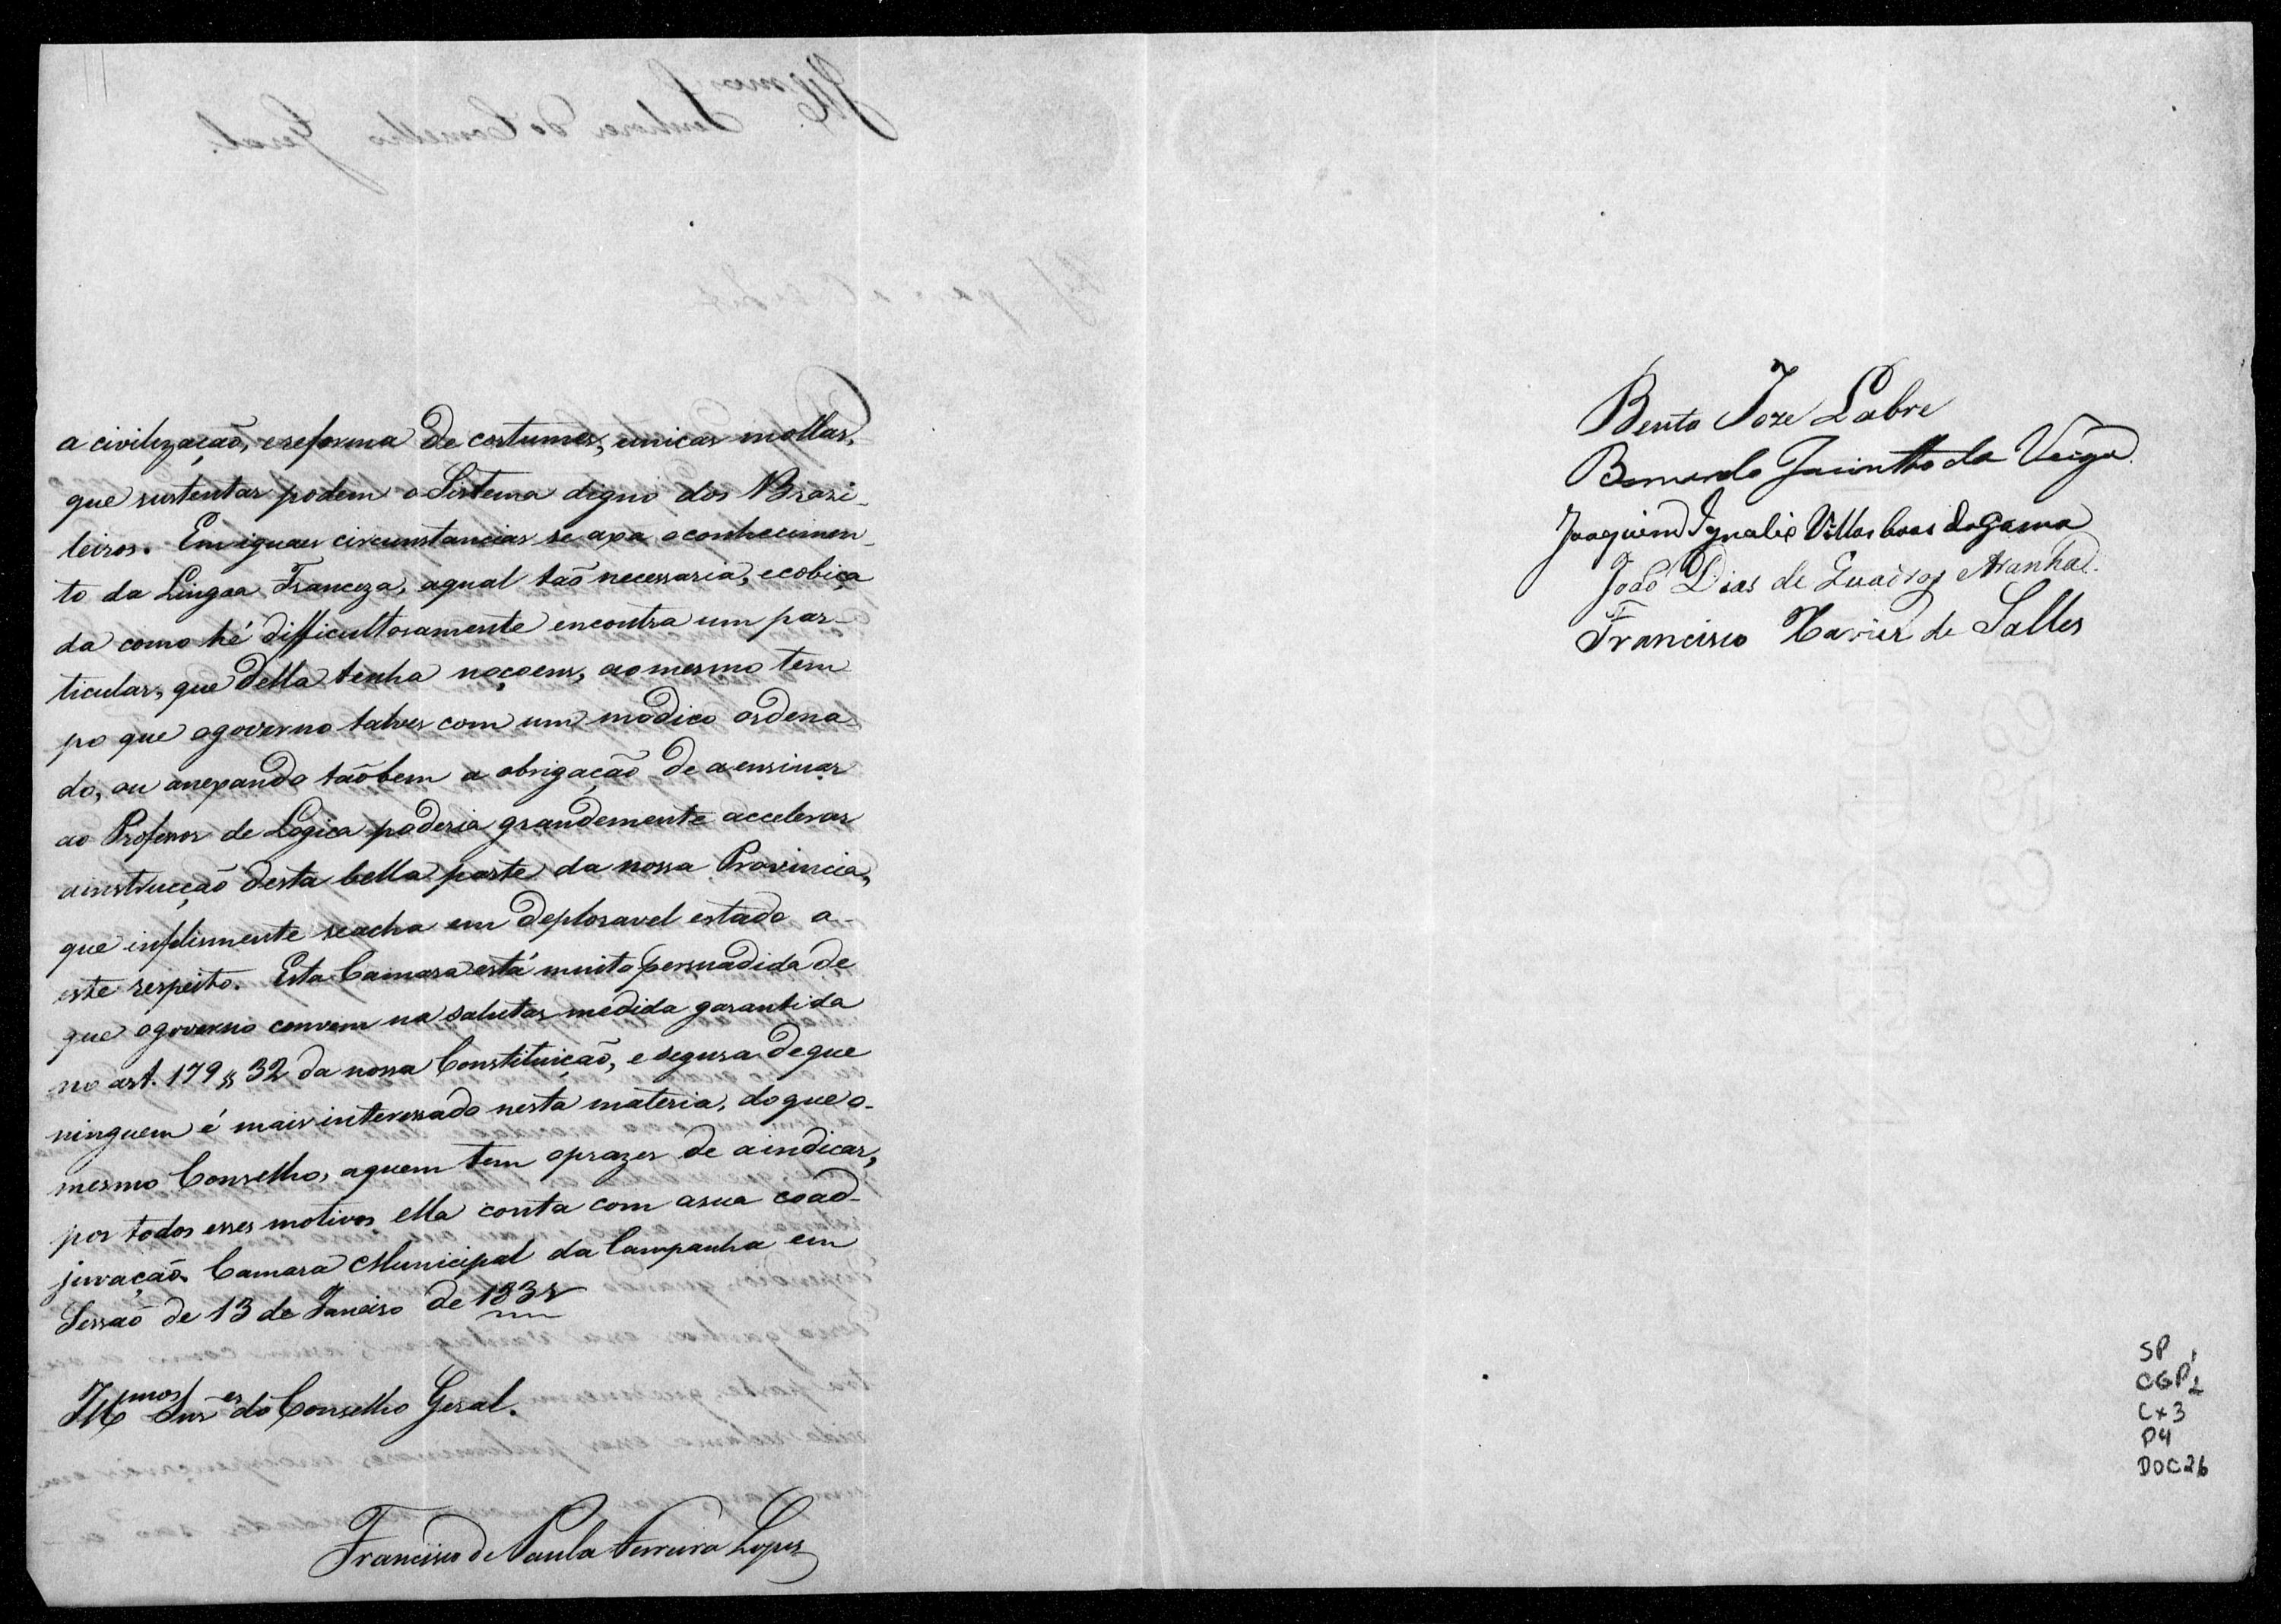 a civilização, e reforma de costumes, unicas mollas,
que sustentar podem o Sistema digno dos Brasi-
leiros. Em iguaes circunstancias se axa o conhecimen-
to da Lingoa Franceza, aqual taõ necessaria, ecobiça
da como hé difficultosamente encontra um par-
ticular, que della tenha noçoens, aomesmo tem
po que ogoverno talves com um modico ordena
do, ou anexando taõbem a obrigação de aensinar
ao Professor de Logica poderia grandemente accelerar
ainstrucção desta bella parte da nossa Provincia,
que infelismente seacha em deploravel estado a-
este respeito. Esta Camara está muito persuadida de
que ogoverno convem na salutar medida garantida
no art. 179 § 32 da nossa Constituição, e segura deque
ninguem é mais interessado nesta materia, doque o-
mesmo Conselho, aquem tem oprazer de aindicar,
por todos esses motivos ella conta com asua coad-
juvação. Camara Municipal da Campanha em
Sessaõ de 13 de Janeiro de
Illmos Snres do Conselho Geral.
Francisco de Paula Ferreira Lopes
Bento Joze Labre
Bernardo Jacintho da Veiga
Joaquim Ignacio Villas boas da Gama
Joaõ Dias de Quadros Aranha
Francisco Xavier de Salles
SP
CGP1
Cx3
P4
DOC26